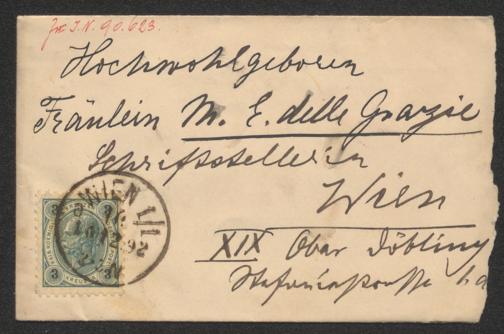 Zu I.N. 90.623.
Hochwohlgeboren
Fräulein M. E. delle Grazie
Schriftstellerin
Wien
XIX Ober Döbling
Stefaniestrasse
WIEN 1/1
92
3 3